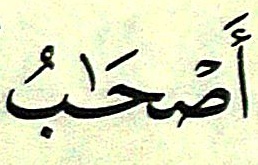 أَصْحَـٰبُ